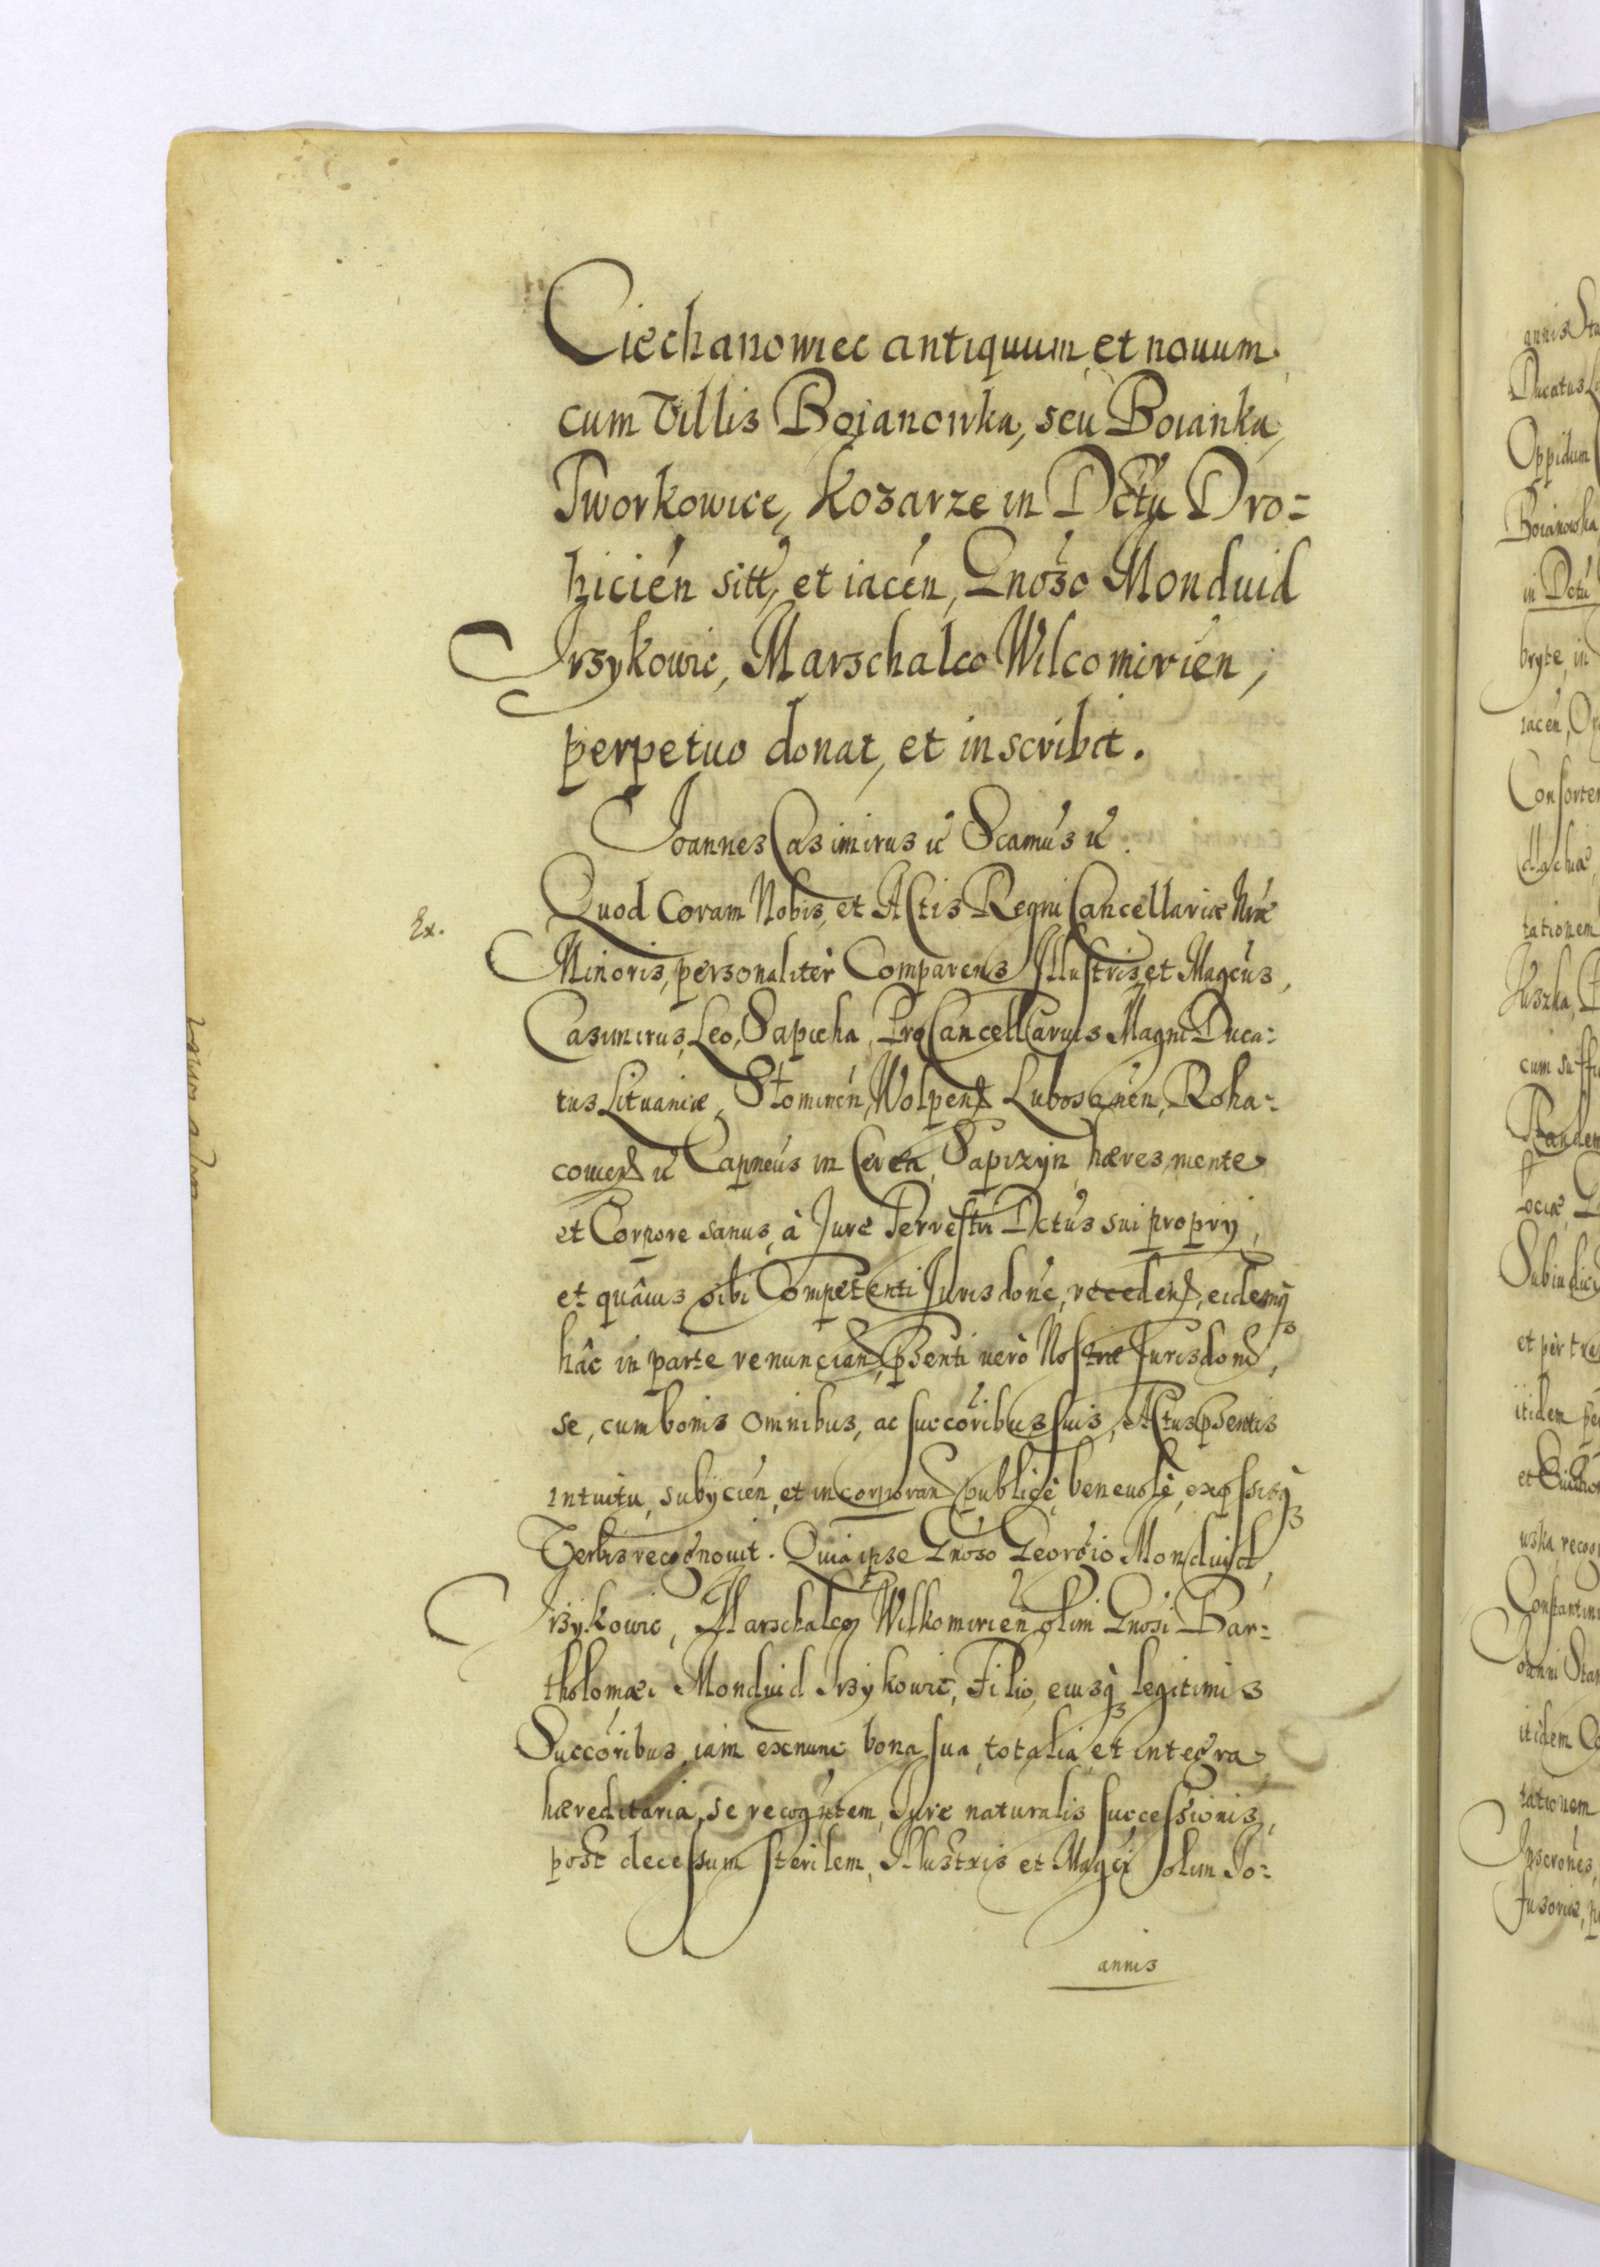 Ciechanowiec antiquum, et nouum
cum Villis Boianowka, seu Boianka,
Tworkowice, Kozarze in Dctu Dro=
hicién sitt, et iacén, Gnoso Monduid
Irzykowic, Marschalco Wilcomirien,
perpetuo donat, et inscribit.
Joannes Casimirus etc Scamus etc.
Quod Coram Nobis, et Actis Regni Cancellariæ Nræ
Ex.
Minoris, personalitèr Comparens Illustris, et Magcus,
Casimirus, Leo, Sapieha, ProCancellarius Magni Duca=
tus Lituaniæ, Wolpen Lubosanen, Roha=
in Sapizyn hæres, mente
et Corpore sanus, à Jure Terrestri Dctus sui proprÿ,
et quâuis sibi Competenti Jurisdone, receden, eidemq3
hâc in parte renuncian, psenti uerò Nostræ Jurisdoni,
se, cum bonis omnibus, ac succoribus suis, Actus psentis
intuitu, subÿcien, et incorporan publicè, beneuolè, expssisq3
Verbis recognouit. Quia ipse Gnoso Georgio Monduid,
Irzykowic, Marschalco Wilkomirien, olim Gnosi Bar=
tholomæi Monduid Irzykowic, Filio, eiusq3 legitimis
Succoribus, iam exnunc bona sua, totalia, et integra,
hæreditaria, se recogntem, Jure naturalis successionis,
post decessum sterilem, Illustris et Magci olim Jo=
annis
annis
Ducatus
Oppidum
Boianowka
in Dctu
iacén,
tationem
et pèr
itidem
Constantini
itidem
tationem